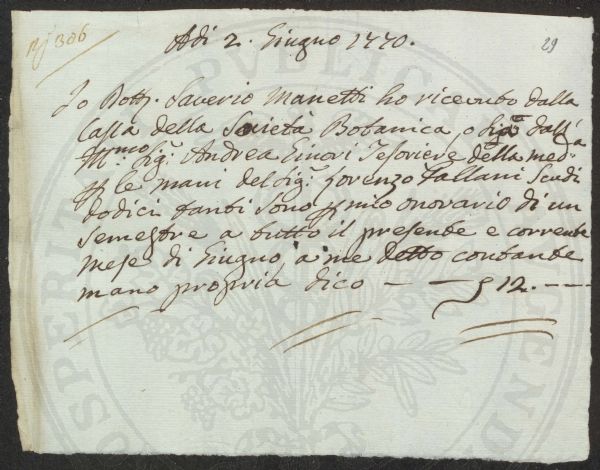 N 306
Adi 2. Giugno 1770.
29
Io Dott. Saverio Manetti ho ricevuto dalla
Cassa della Società Botanica, o sia dall'
Ill.mo Sig. Andrea Ginori Tesoriere della med.a
p le mani del Sig. Lorenzo Tallani Scudi
dodici tanti sono p mio onorario di un
semestre a tutto il presente e corrente
mese di Giugno a me detto contante
mano propria dico — — 12. —
PUBLICAE
PROSPERITATI AUGENDAE